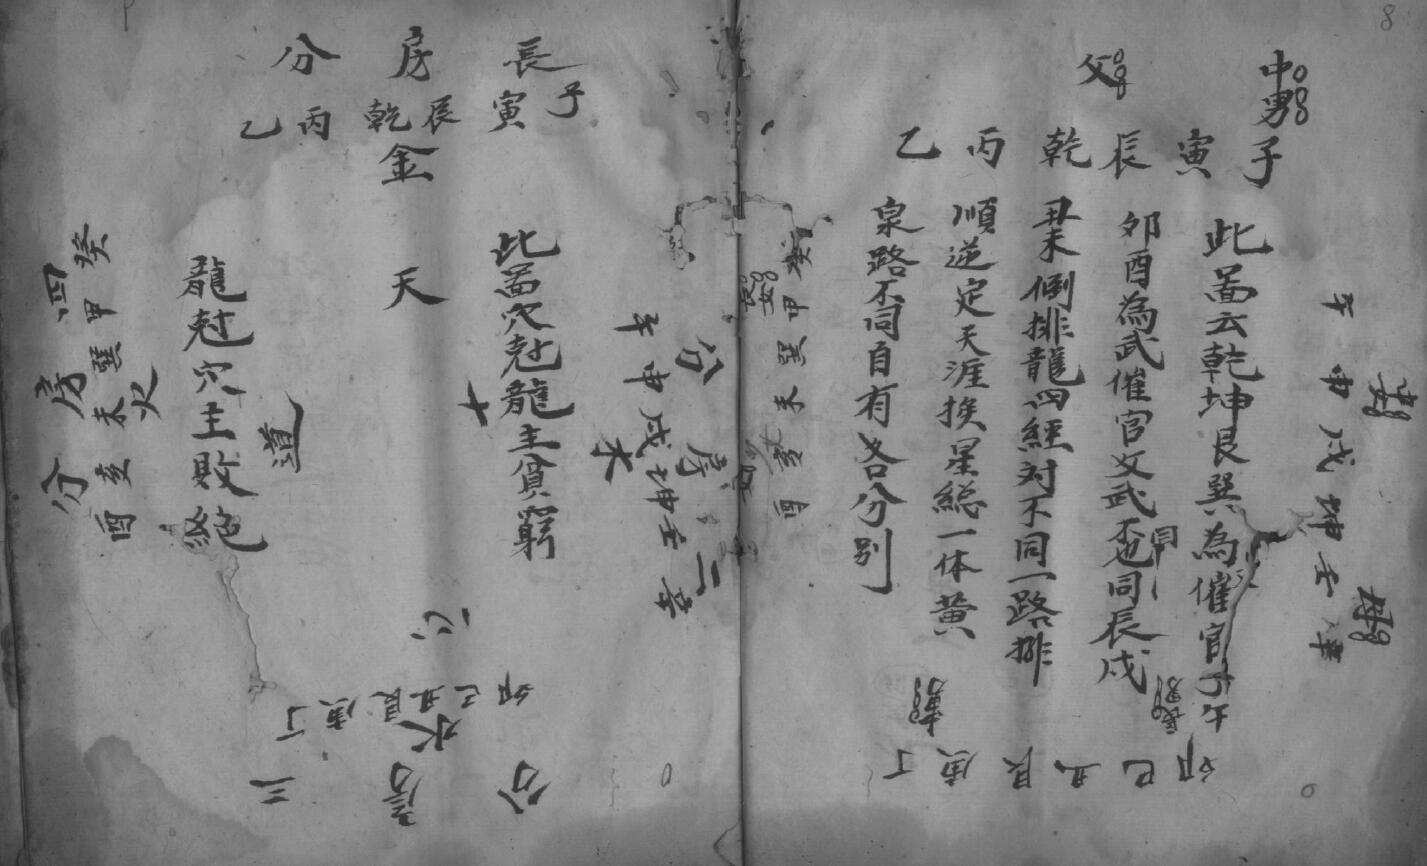 中男
父
子寅辰乾丙乙
此啚云乾坤艮巽為催官子午
卯酉為武催官文武不同辰戌
丑未倒排龍四經对不同一路排
順逆定天涯换星総一体黄
泉路不同自有各分别
午申戌坤壬辛
卯巳丑艮庚丁
癸甲巽未亥酉
長房分
子寅辰乾丙乙
金
此啚穴尅龍主貧窮
天
道
龍尅穴主敗絶
二房分
午申戌坤壬辛
木
三房分
卯巳丑艮庚丁
水
四房分
癸甲巽未亥酉
火
8